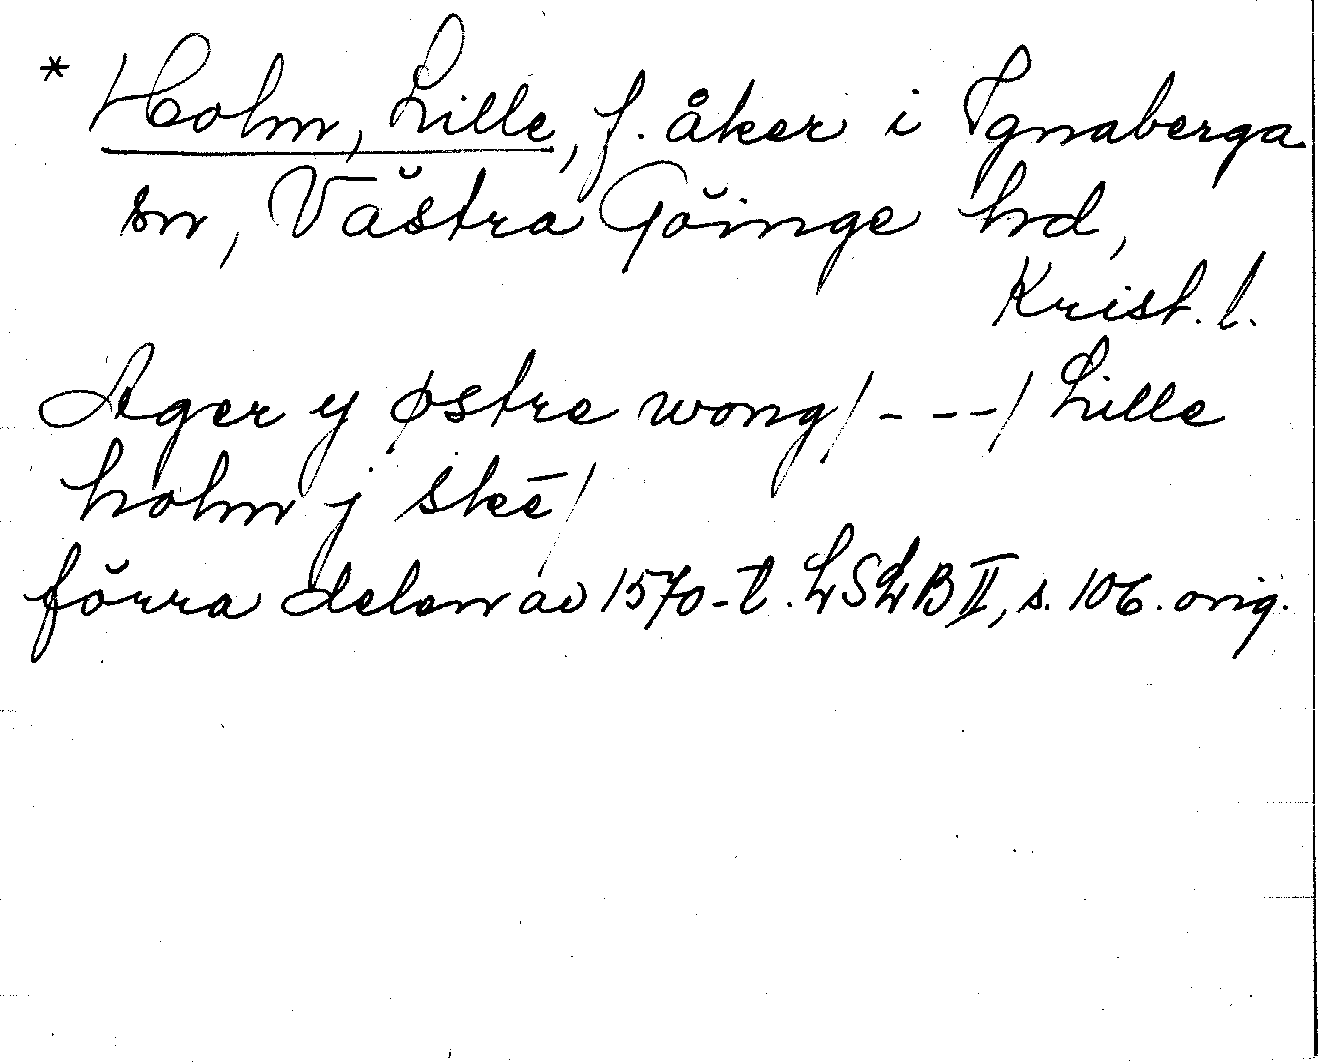 * Holm, Lille, f. åker i Ignaberga
sn, Västra Göinge hd,
Krist. l.
Ager y østre wong/---/ Lille
holm j skē/
förra delen av 1570-t. LSLB II, s. 106. orig.